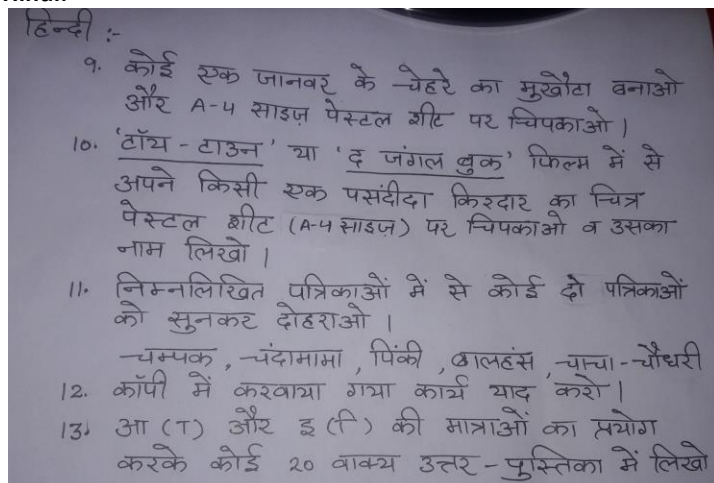 हिन्दी :-
9. कोई एक जानवर के चेहरे का मुखौटा बनाओ
और A-4 साइज़ पेस्टल शीट पर चिपकाओ।
10. 'टॉय - टाउन' या 'द जंगल बुक' फिल्म में से
अपने किसी एक पसंदीदा किरदार का चित्र
पेस्टल शीट (A-4 साइज़) पर चिपकाओ व उसका
नाम लिखो।
11. निम्नलिखित पत्रिकाओं में से कोई दो पत्रिकाओं
को सुनकर दोहराओ।
चम्पक, चंदामामा, पिंकी, बालहंस, चाचा-चौधरी
12. कॉपी में करवाया गया कार्य याद करो।
13. आ (ा) और इ (ि) की मात्राओं का प्रयोग
करके कोई 20 वाक्य उत्तर - पुस्तिका में लिखो